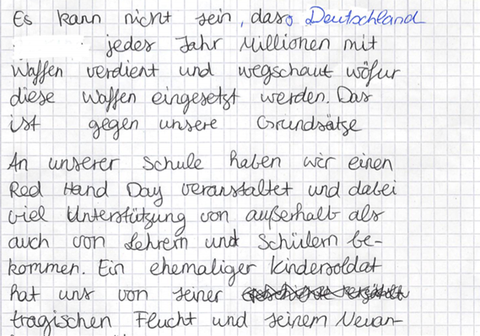 Es kann nicht sein, dass Deutschland
jedes Jahr Millionen mit
Waffen verdient und wegschaut wofür
diese Waffen eingesetzt werden. Das
ist gegen unsere Grundsätze
An unserer Schule haben wir einen
Red Hand Day veranstaltet und dabei
viel Unterstützung von außerhalb als
auch von Lehrern und Schülern be-
kommen. Ein ehemaliger Kindersoldat
hat uns von seiner
tragischen Flucht und seinem Neuan-